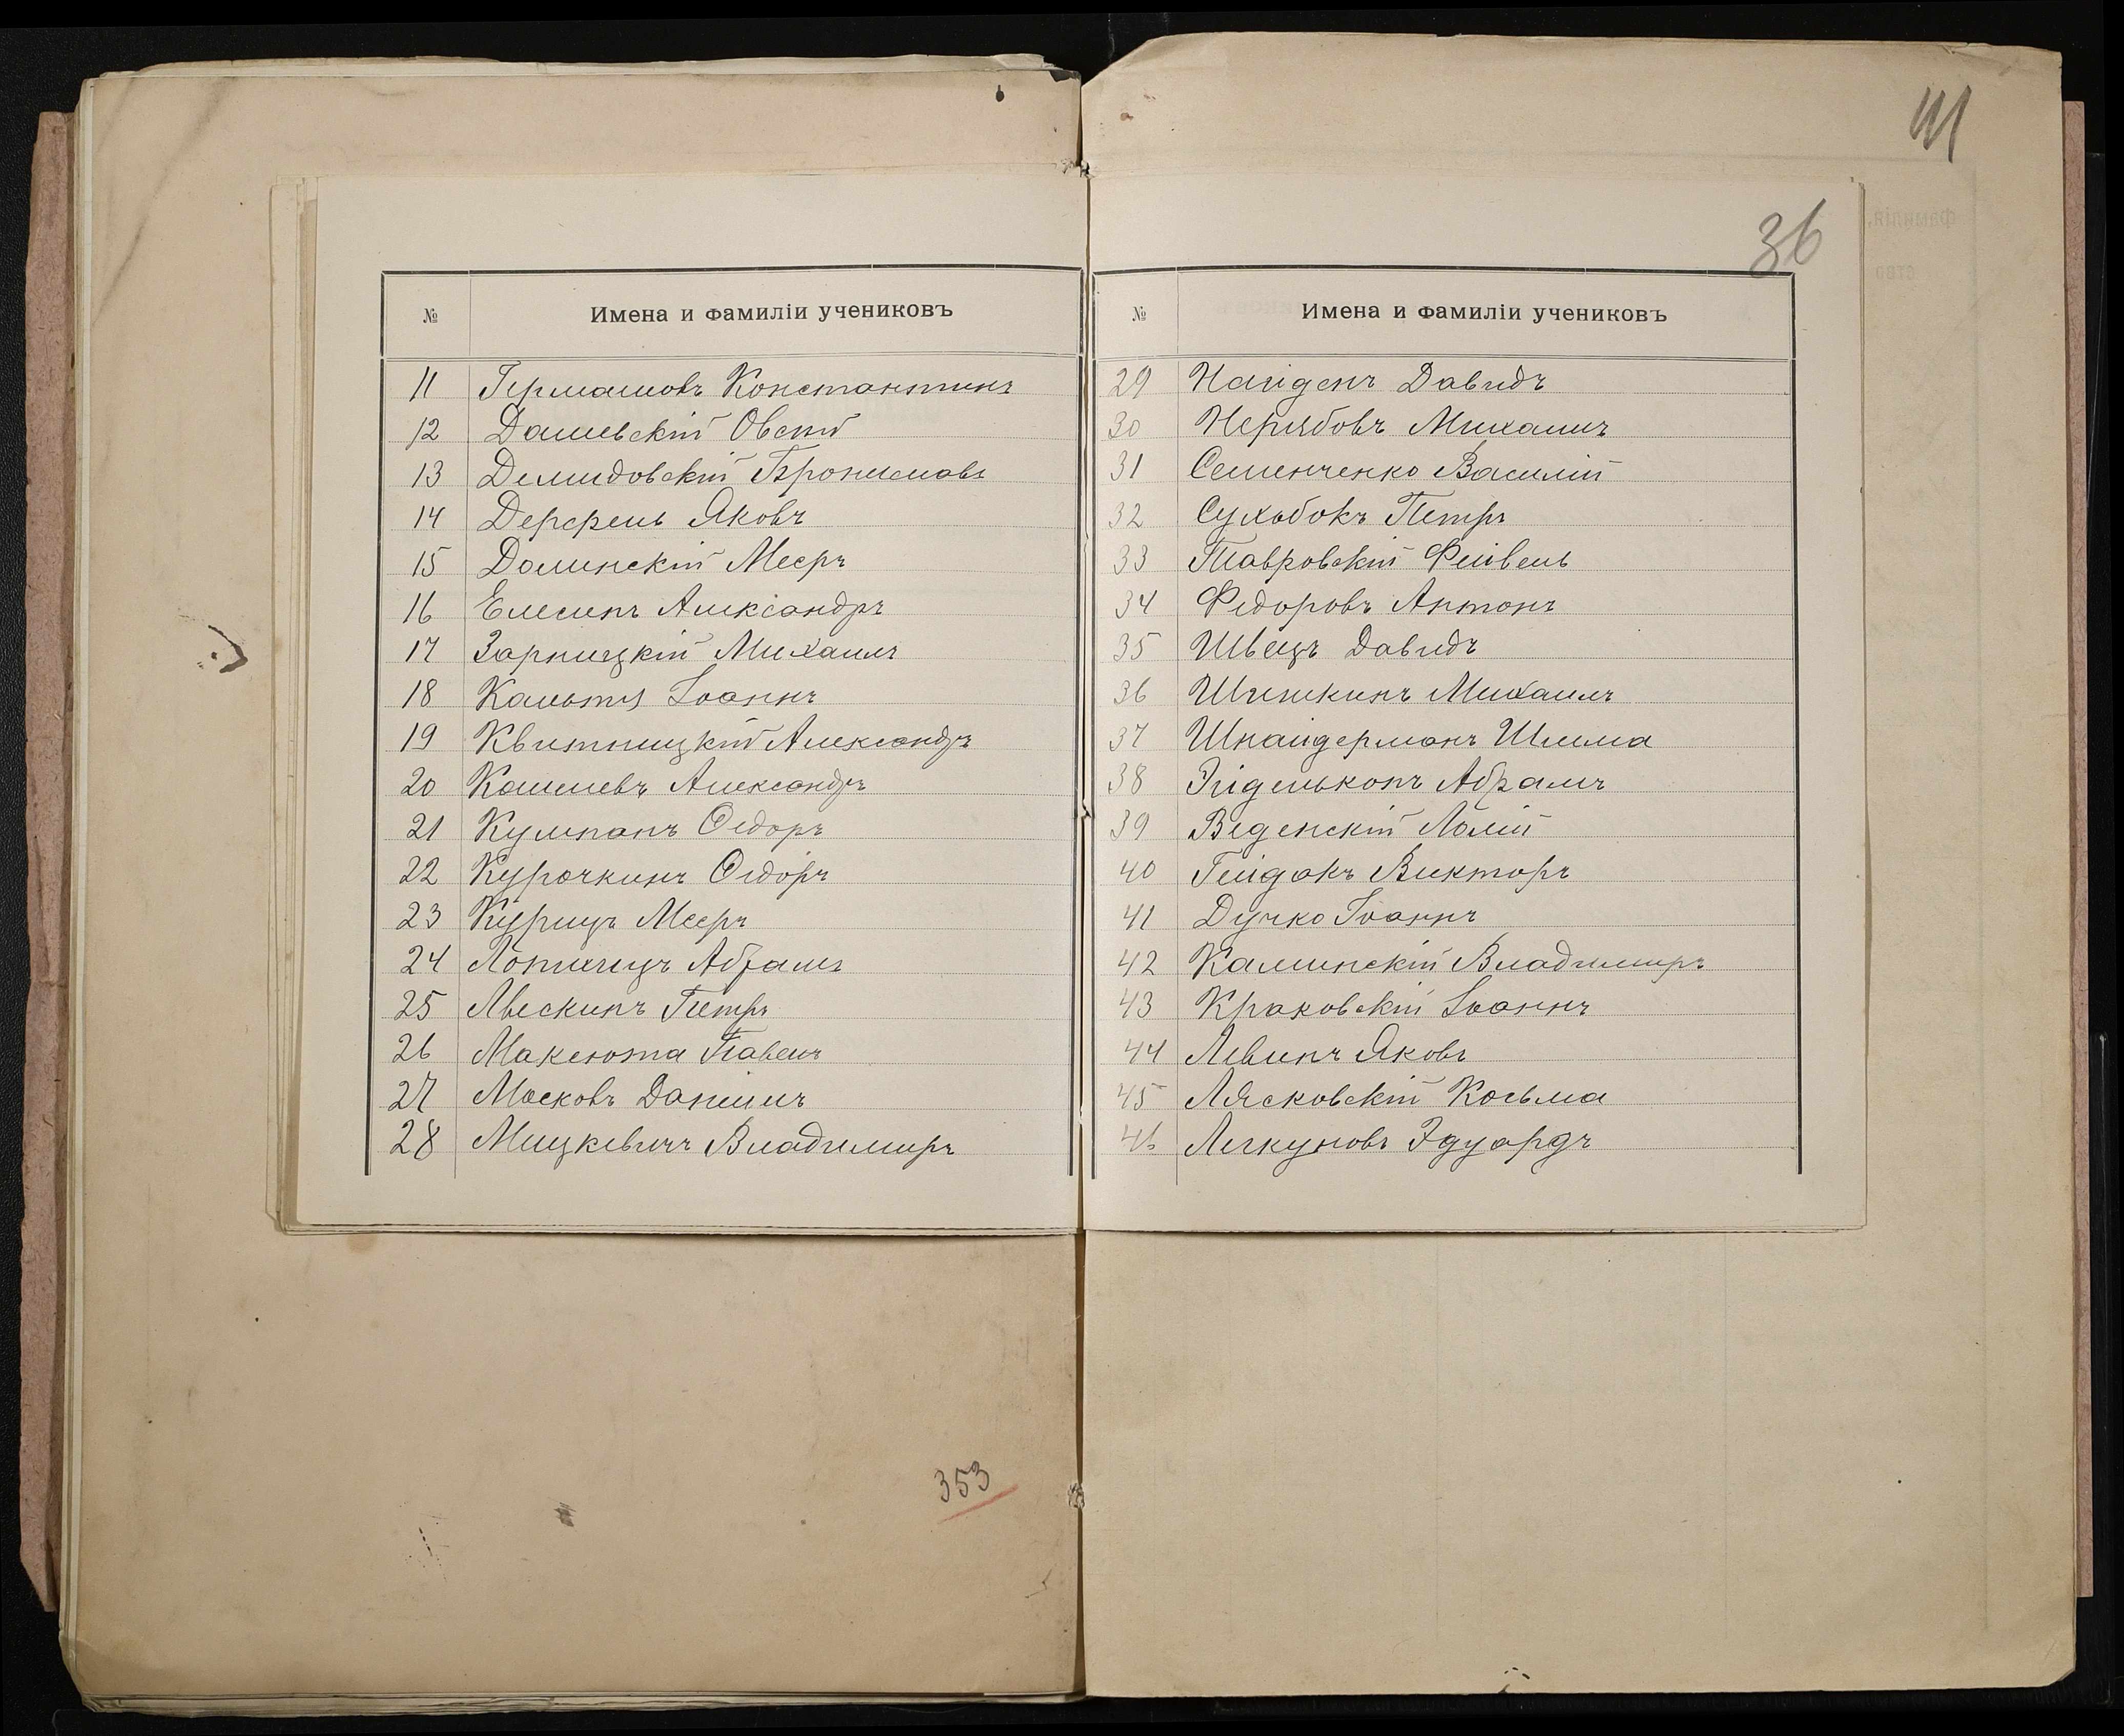 111
36
№ Имена и фамиліи учениковъ
11 Германовъ Константинъ
12 Дашевскій Овсей
13 Демидовскій Брониславъ
14 Дерфель Яковъ
15 Долинскій Мееръ
16 Елесинъ Александръ
17 Зарницкій Михаилъ
18 Кальтя Іоаннъ
19 Квитницкій Александръ
20 Кошелевъ Александръ
21 Кулпанъ Ѳедоръ
22 Курочкинъ Ѳедоръ
23 Курицъ Мееръ
24 Абрамъ
25 Лѣскинъ Петръ
26 Максюта Павелъ
27 Московъ Даніилъ
28 Мицкевичъ Владимиръ
№ Имена и фамиліи учениковъ
29 Найденъ Давидъ
30 Нерябовъ Михаилъ
31 Семенченко Василій
32 Сухобокъ Петръ
33 Тавровскій Фейвель
34 Федоровъ Антонъ
35 Швецъ Давидъ
36 Шишкинъ Михаилъ
37 Шнайдерманъ Шлема
38 Эйделькопъ Абрамъ
39 Веденскій
40 Гейдокъ Викторъ
41 Дучко Іоаннъ
42 Каминскій Владимиръ
43 Краковскій Іоаннъ
44 Левинъ Яковъ
45 Лясковскій Косьма
46 Легкуновъ Эдуардъ
353